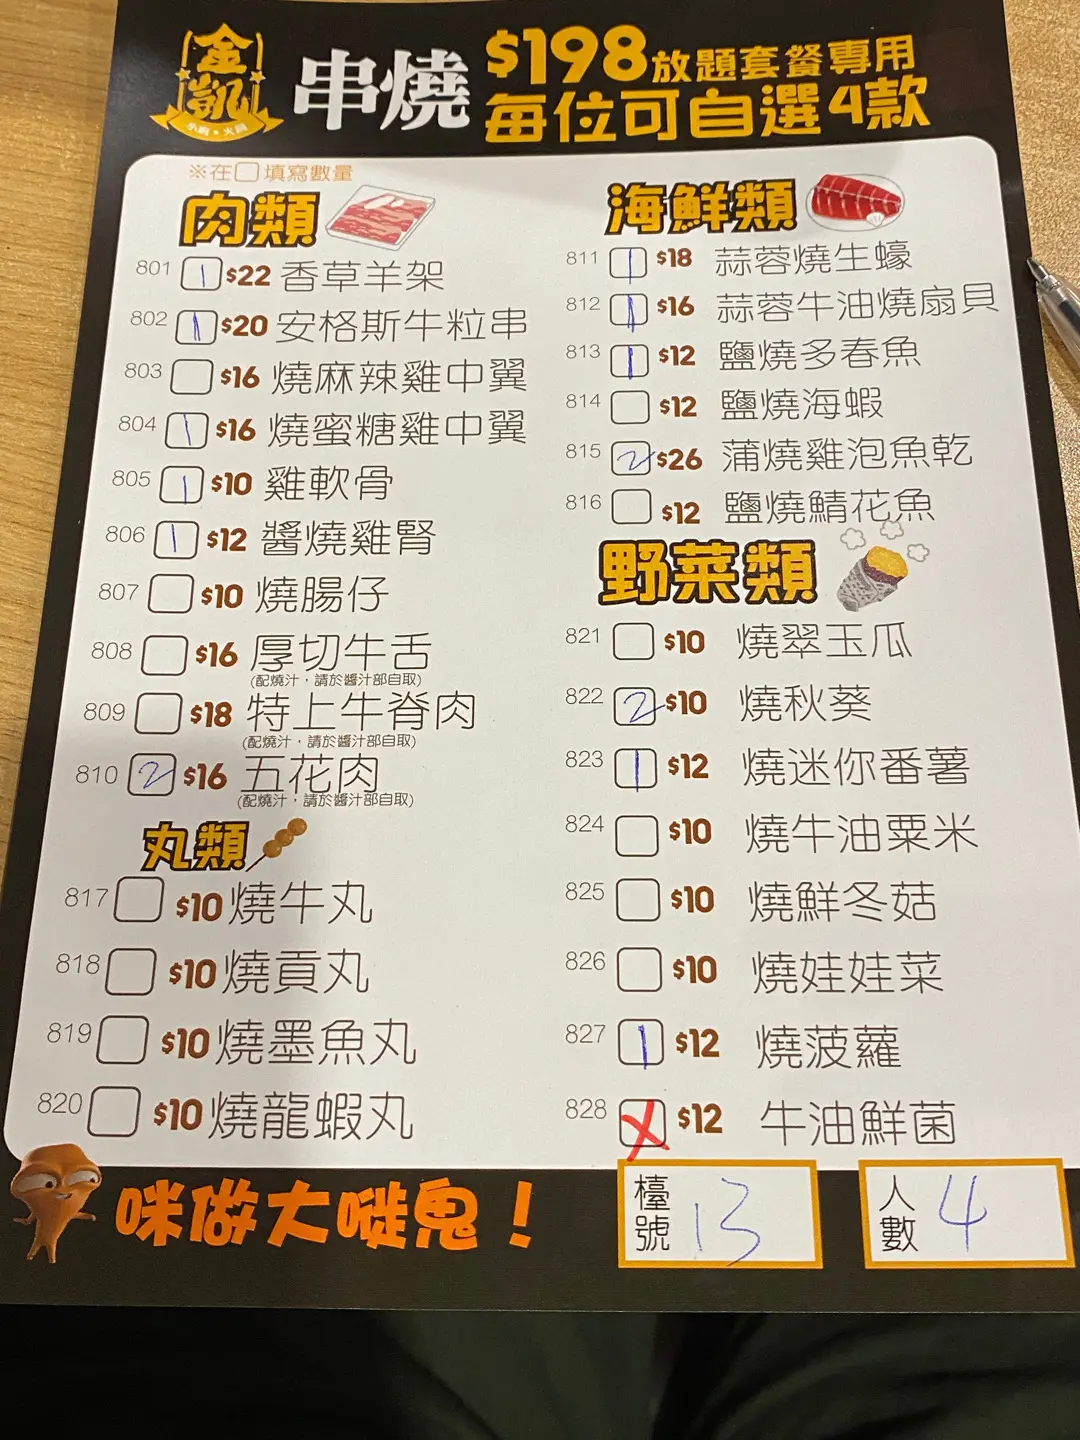 金凱
小廚•火鍋
串燒
$198放題套餐專用
每位可自選4款
※在□填寫數量
肉類
801 1 $22 香草羊架
802 1 $20 安格斯牛粒串
803 $16 燒麻辣雞中翼
804 1 $16 燒蜜糖雞中翼
805 1 $10 雞軟骨
806 1 $12 醬燒雞腎
807 $10 燒腸仔
808 $16 厚切牛舌
(配燒汁，請於醬汁部自取)
809 $18 特上牛脊肉
(配燒汁，請於醬汁部自取)
810 2 $16 五花肉
(配燒汁，請於醬汁部自取)
丸類
817 $10 燒牛丸
818 $10 燒貢丸
819 $10 燒墨魚丸
820 $10 燒龍蝦丸
海鮮類
811 1 $18 蒜蓉燒生蠔
812 1 $16 蒜蓉牛油燒扇貝
813 1 $12 鹽燒多春魚
814 $12 鹽燒海蝦
815 2 $26 蒲燒雞泡魚乾
816 $12 鹽燒鯖花魚
野菜類
821 $10 燒翠玉瓜
822 2 $10 燒秋葵
823 1 $12 燒迷你番薯
824 $10 燒牛油粟米
825 $10 燒鮮冬菇
826 $10 燒娃娃菜
827 1 $12 燒菠蘿
828 X $12 牛油鮮菌
咪做大嘥鬼！
檯號 13
人數 4